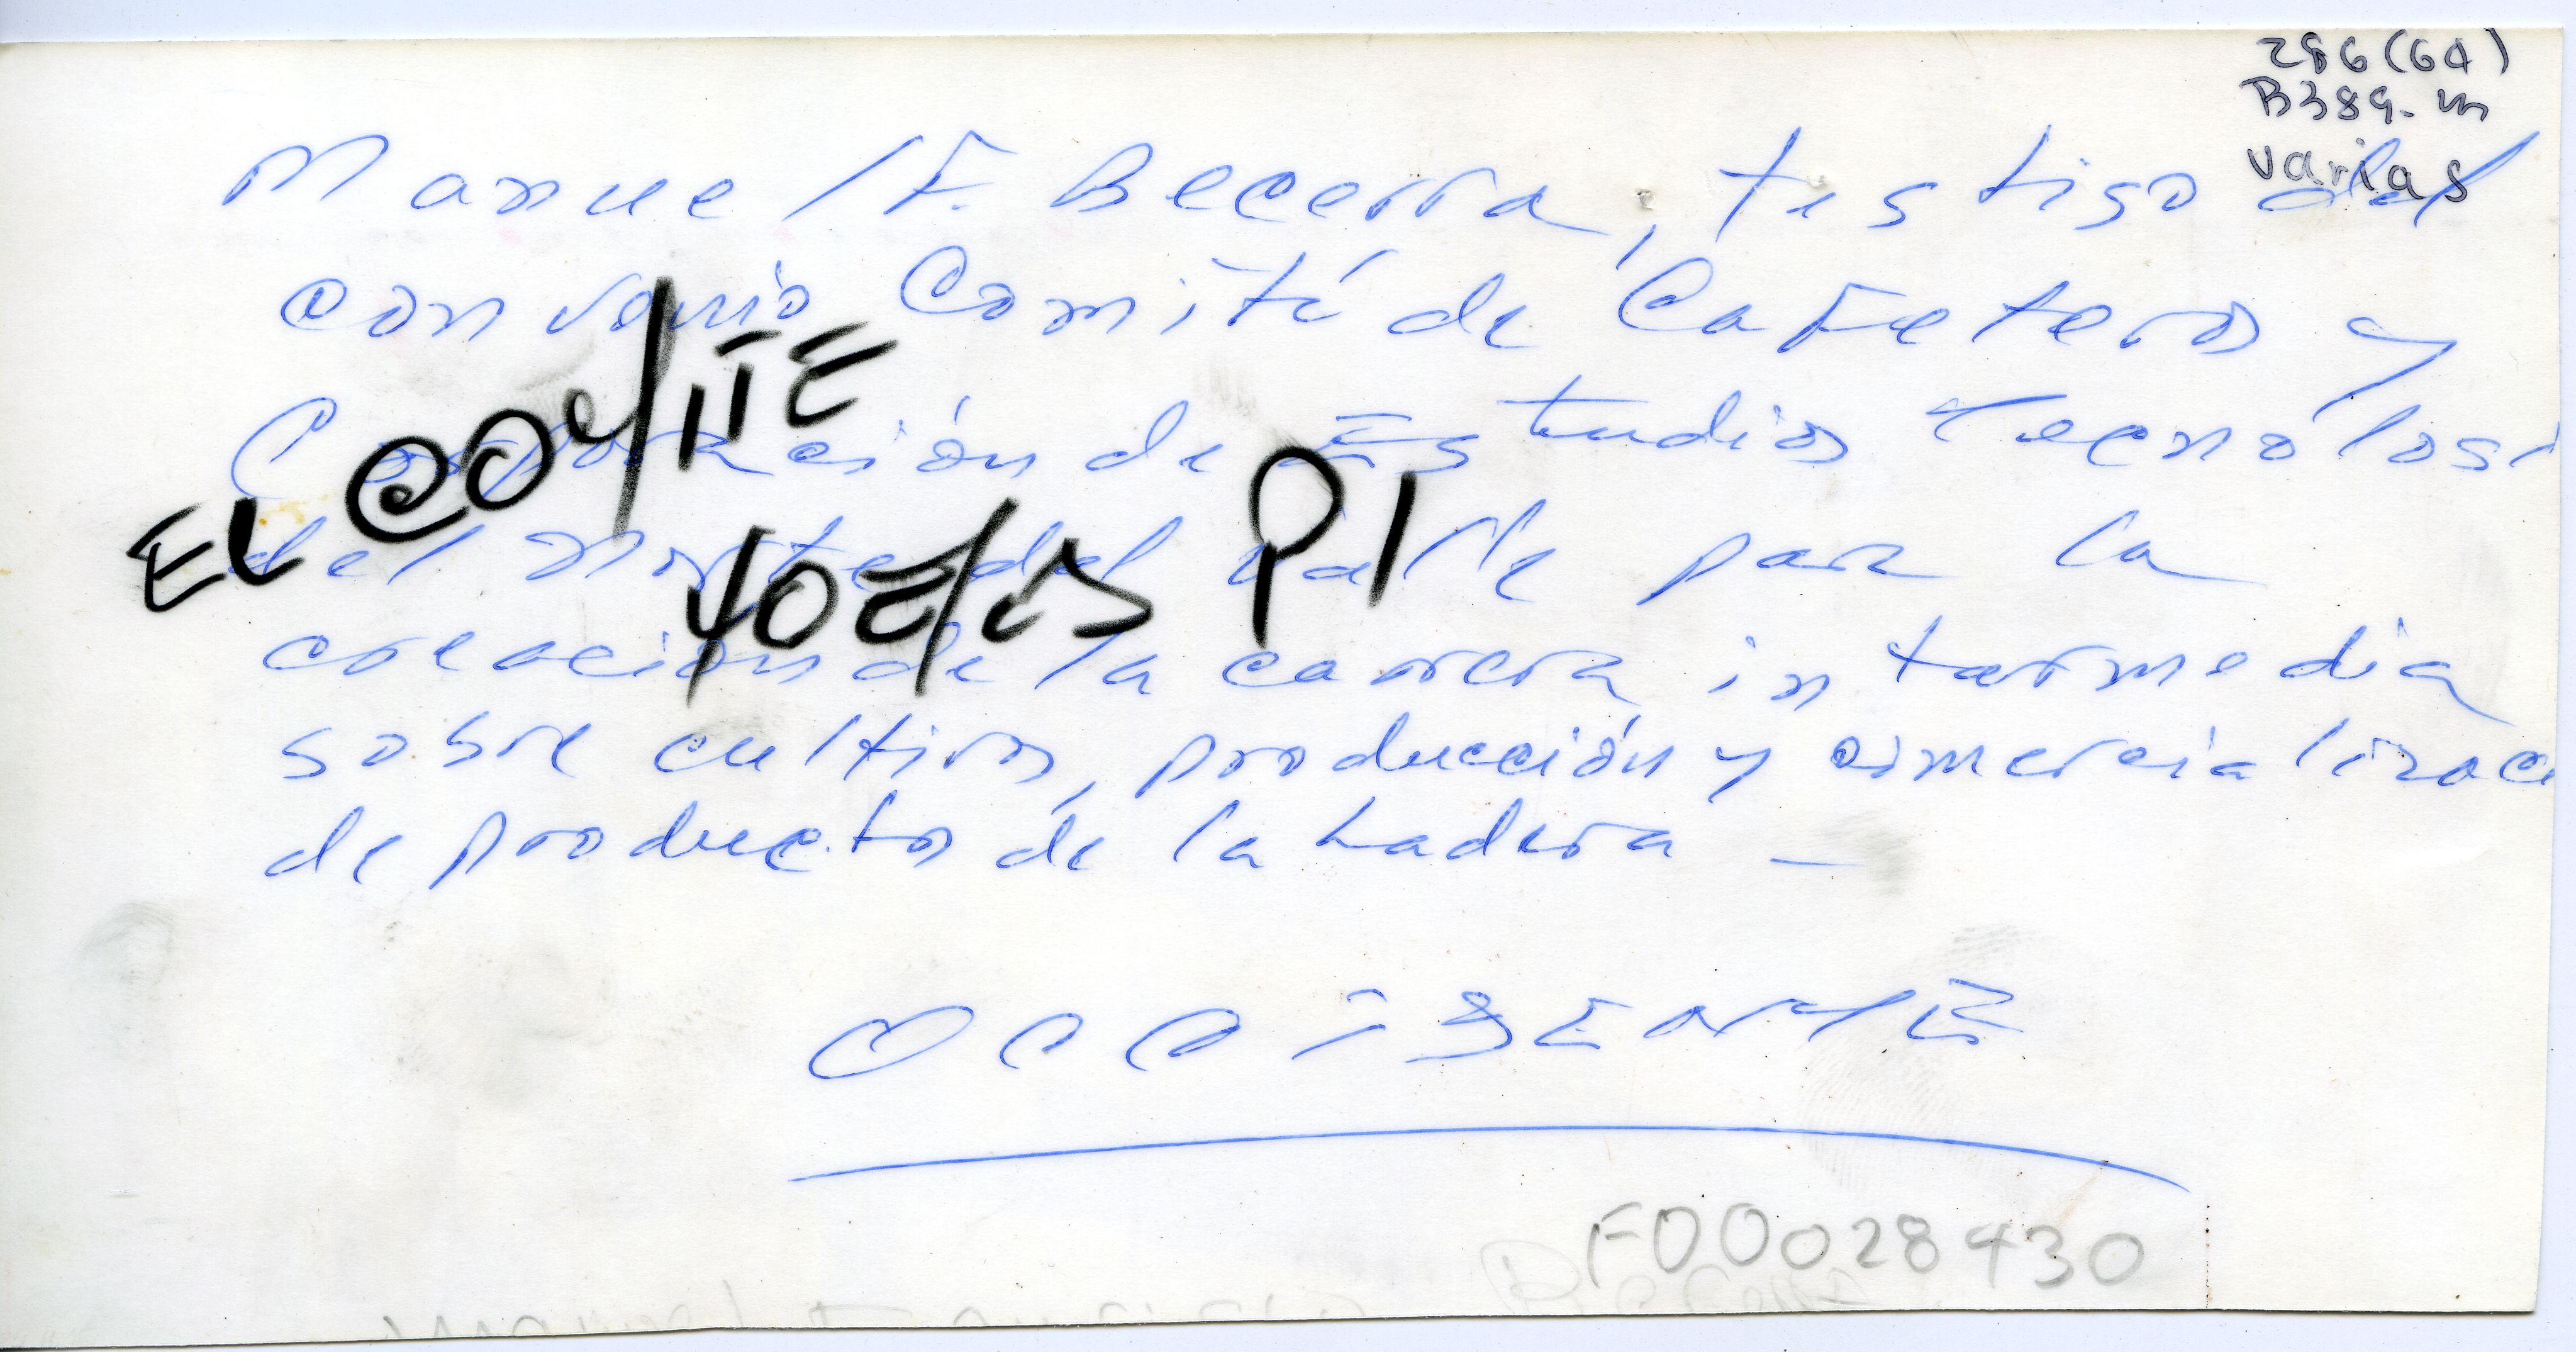 286(64)
B389-m
varias
Manuel F. Becerra, testigo del
convenio Comité de Cafeteros y
Corporación de Estudios Tecnológi
del Norte del Valle para la
creación de la carrera intermedia
sobre cultivos, producción y comercializaci
de productos de la Ladera -
EL COMITE
P1
OCCIDENTE
F00028430